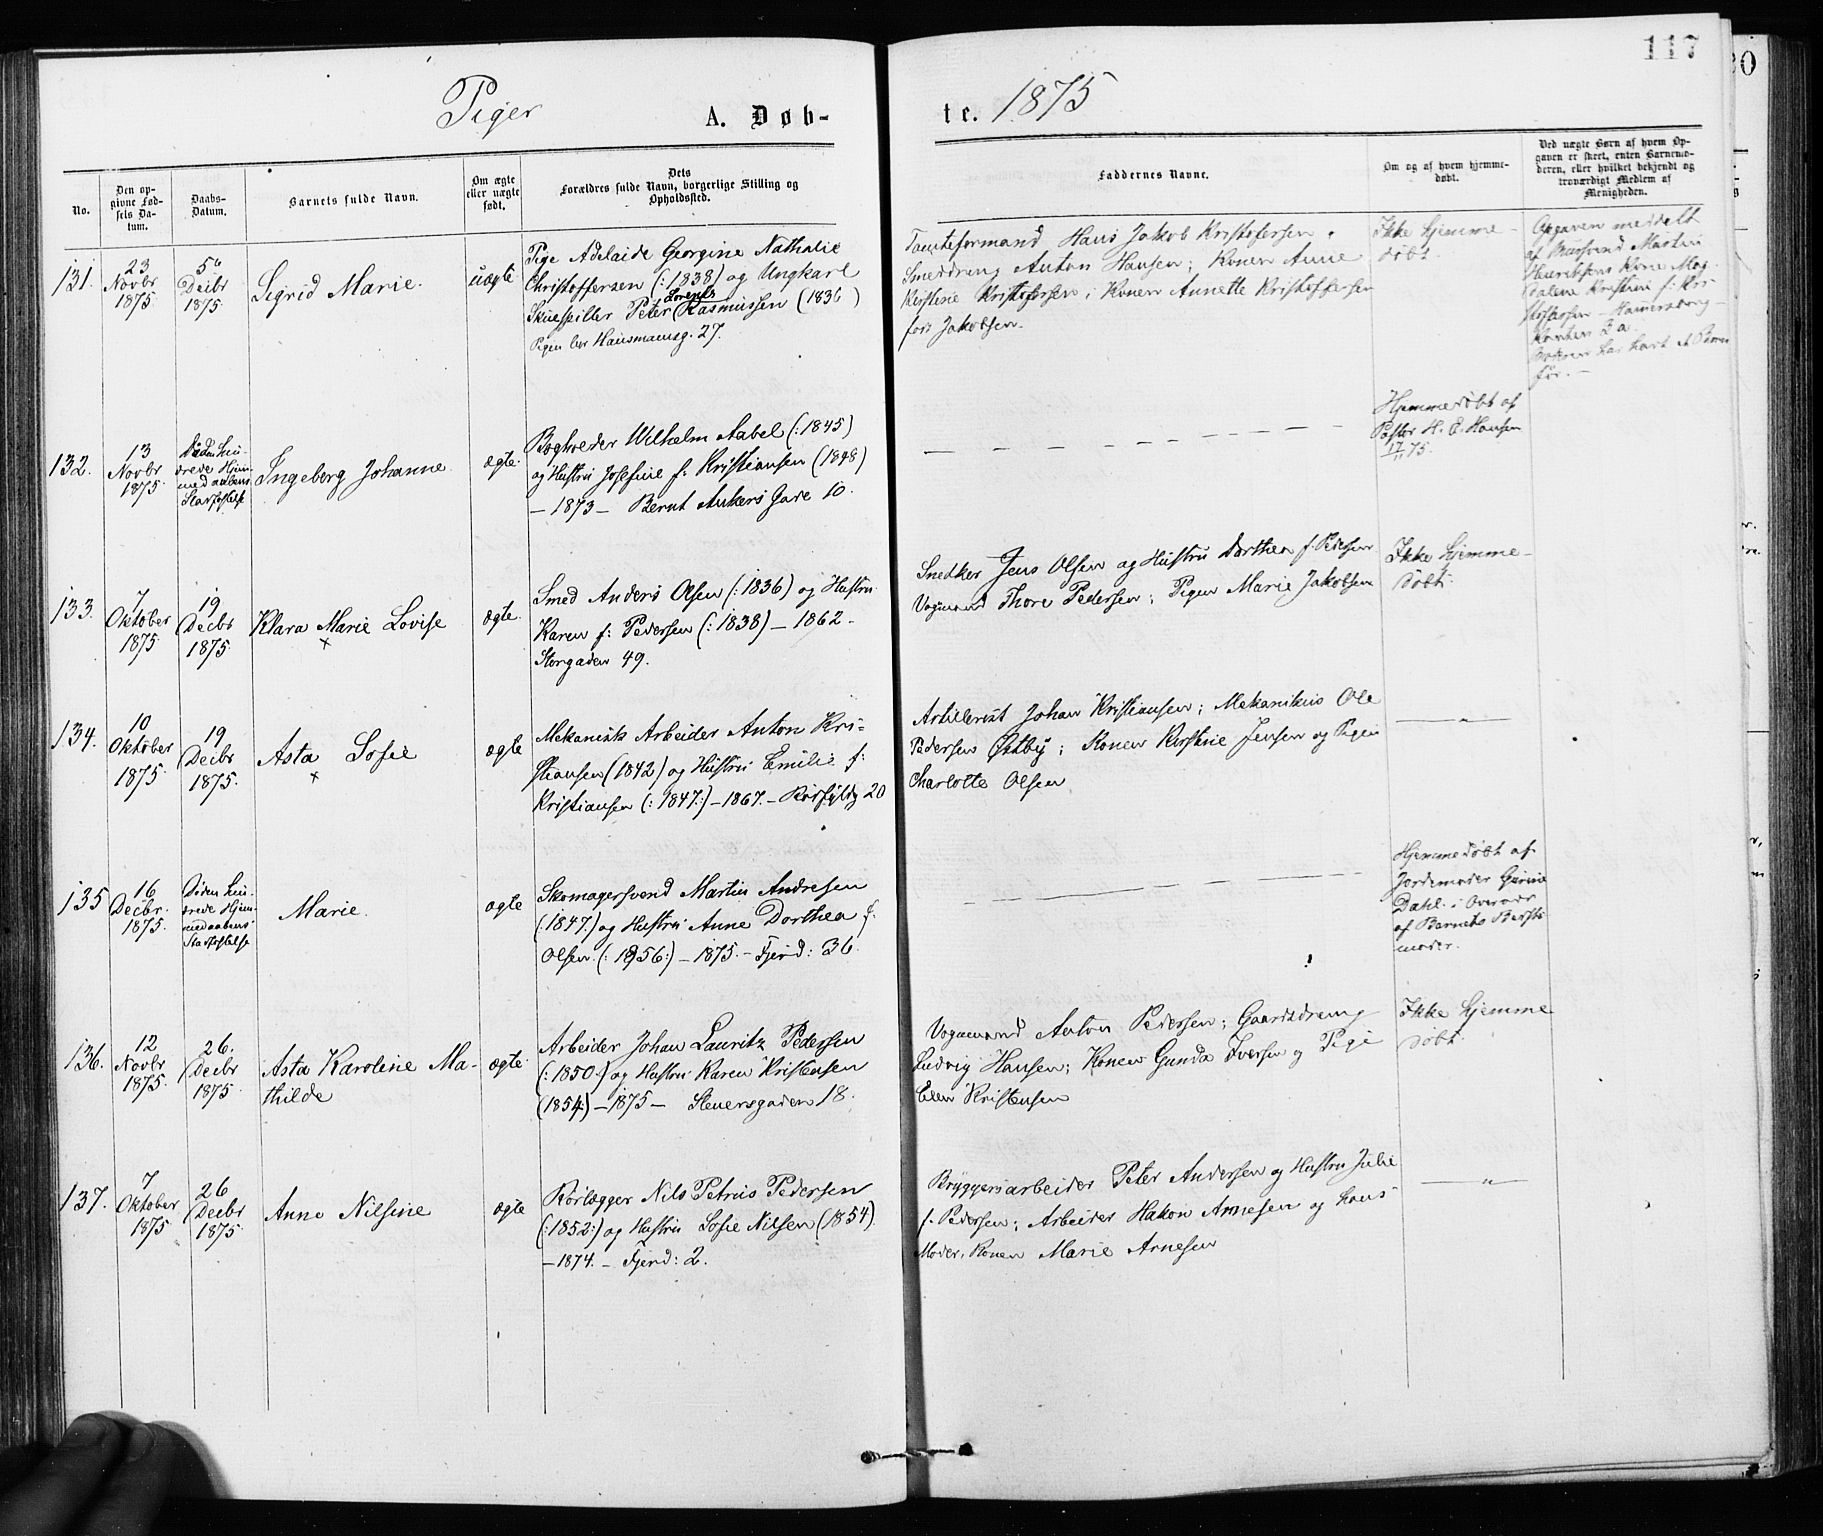 117
Piger
A. Døb-
te. 1875
No.
Den op-
givne Fød-
sels Da-
tum.
Daabs-
Datum.
Barnets fulde Navn.
Om ægte
eller uægte
født.
Dets
Forældres fulde Navn, borgerlige Stilling og
Opholdssted.
Faddernes Navne.
Om og af hvem hjemme-
døbt.
Ved uægte Børn af hvem Op-
gaven er skeet, enten Barnemo-
deren, eller hvilket bekjendt og
troværdigt Medlem af
Menigheden.
131.
23
Novbr
1875
5
Decbr
1875
Sigrid Marie.
uægte
Pige Adelaide Georgine Nathalie
Christoffersen (: 1838) og Ungkarl
Skuespiller Peter Lorents Rasmussen (1836)
Pigen bor Hausmansg. 27.
Tomteformand Hans Jakob Kristofersen.
Smeddreng Anton Hansen; Konen Anne
Kristine Kristofersen; Konen Annette Kristoffersen
for: Jakobsen.
Ikke hjemme-
døbt.
Opgaven meddelt
af Mursvend Martin
Henriksens Kone Mag-
dalene Kristine f: Kri-
stofersen - Hamersborg-
kanten 2a.
Moderen har havt et Barn
før. -
132.
13
Novbr
1875
med aabens
Ingeborg Johanne
ægte
Bogholder Wilhelm Aabel (: 1845)
og Hustru Josefine f: Kristiansen (1848)
- 1873 - Bernt Ankers Gade 10.
Hjemmedøbt af
Pastor H. C. Hansen
17/11 75.
133.
7
Oktober
1875
19
Decbr
1875
Klara Marie Lovise
×
ægte.
Smed Anders Olsen (: 1836) og Hustru
Karen f: Pedersen (: 1838) - 1862 -
Storgaden 49.
Snedker Jens Olsen og Hustru Dorthea f. Pedersen
Vogmand Thore Pedersen; Pigen Marie Jakobsen
Ikke hjemme-
døbt.
134.
10
Oktober
1875
19
Decbr
1875.
Asta Sofie
×
ægte
Mekanisk Arbeider Anton Kri-
stiansen (1842) og Hustru Emilie f:
Kristiansen (: 1847:) - 1867. - 20
Artillerist Johan Kristiansen; Mekanikus Ole
Pedersen Østby; Konen Kirstine Jensen og Pigen
Charlotte Olsen
— " —
135
16
Decbr.
1875.
Marie.
ægte
Skomagersvend Martin Andresen
(: 1847.) og Hustru Anne Dorthea f:
Olsen. (: 1856:) - 1875. - Fjerd: 36.
Hjemmedøbt af
Jordemoder Gurine
Dahl. i Overvær
af Barnets Bedste-
moder.
136.
12
Novbr
1875.
26.
Decbr
1875.
Asta Karoline Ma-
thilde
ægte
Arbeider Johan Lauritz Pedersen
(: 1850.) og Hustru Karen Kristensen
(1854) - 1875 - Steuersgaden 18.
Vogmand Anton Pedersen; Gaardsdreng
Ludvig Hansen; Konen Gunda Iversen og Pige
Elen Kristensen
Ikke hjemme
døbt.
137.
7
Oktober
1875
26
Decbr
1875.
Anne Nilsine
ægte
Rørlægger Nils Petrus Pedersen
(: 1852:) og Hustru Sofie Nilsen (1854)
- 1874. - Fjerd: 2.
Bryggeriarbeider Peter Andersen og Hustru Julie
f. Pedersen; Arbeider Hakon Arnesen og hans
Moder, Konen Marie Arnesen
— " —